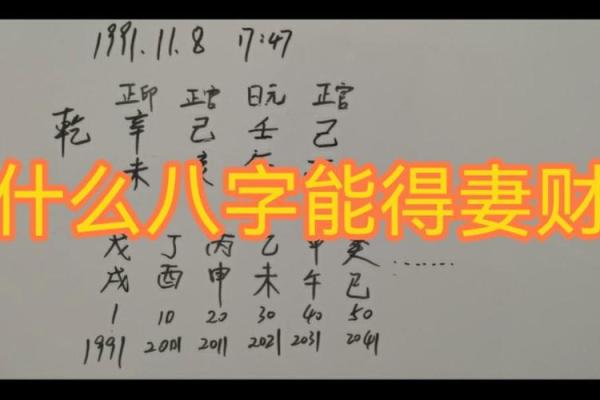 1991.11.8 17:47
正印 正官 日元 正官
乾 辛 己 壬 己
未 亥
什么八字能得妻财
戊 丁 丙 乙 甲 癸
戌 酉 申 未 午 巳 ......
1 10 20 30 40 50
1991 2001 2011 2021 2031 2041